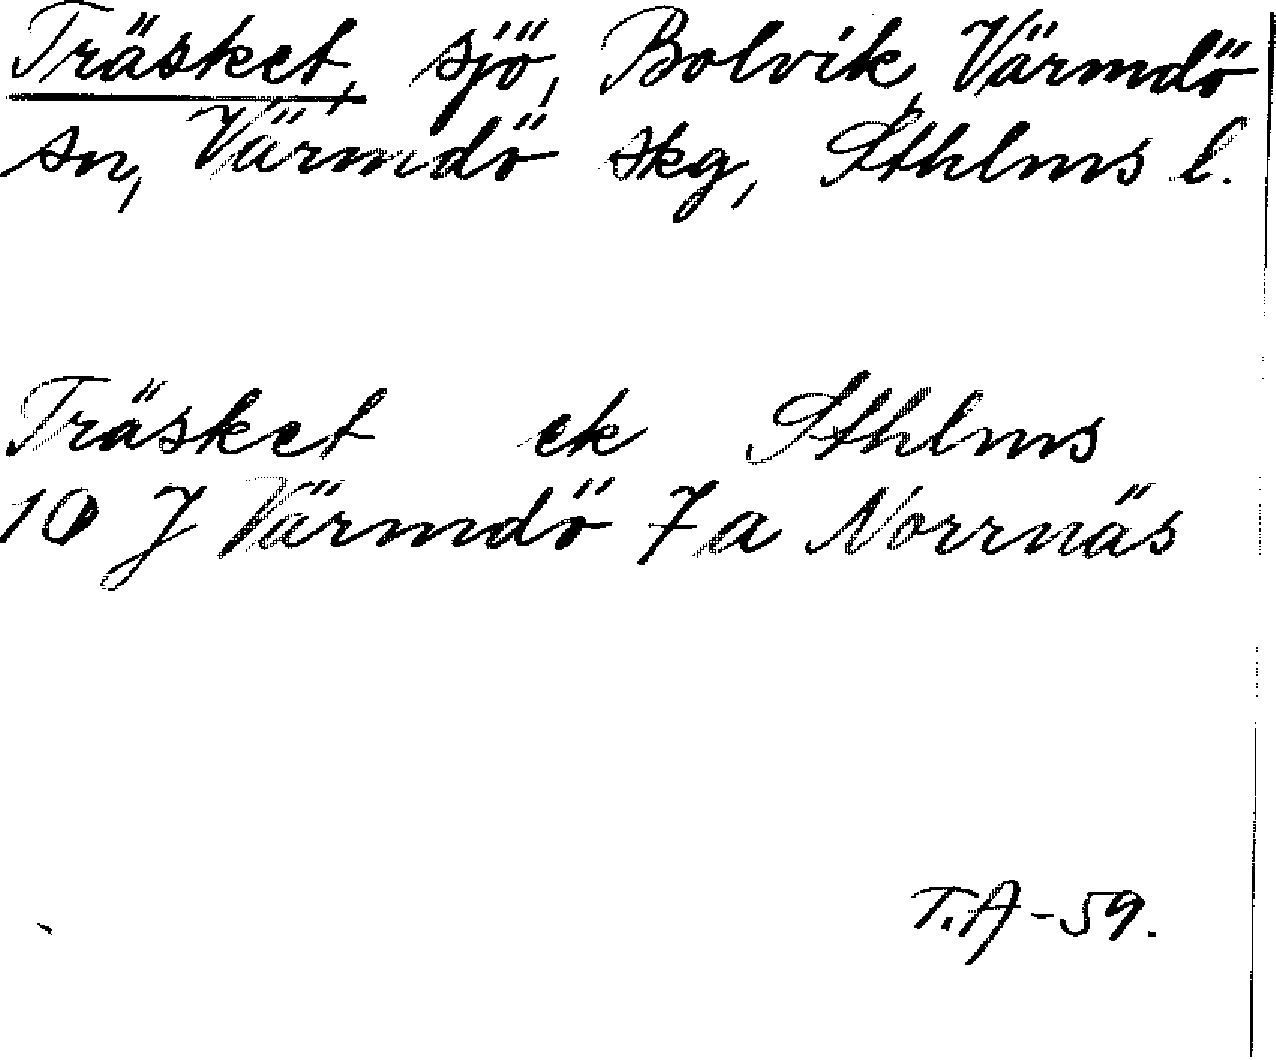 Träsket, sjö, Bolvik, Värmdö
sn, Värmdö skg, Sthlms l.
Träsket ek Sthlms
10 J Värmdö 7a Norrnäs
T.A-59.